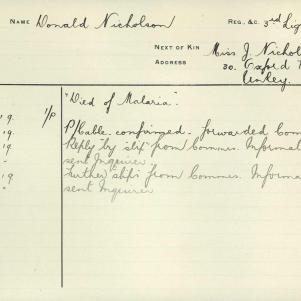 NAME Donald Nicholson REG. &C. 3rd Lig
NEXT OF KIN Miss J. Nichol
ADDRESS 30. Exford
19. 1/P "Died of Malaria".
19. P/Cable. confirmed. forwarded Com
19 Reply by slip from Commrs. Informat
" sent Inquirer.
19 Further slips from Commrs. Informa
" sent Inquirer